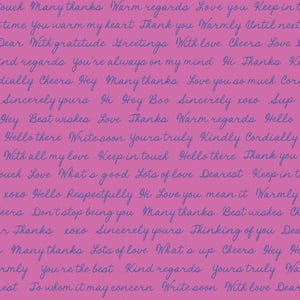 ouch Many thanks Warm regards Love you Keep in t
time You warm my heart Thank you Warmly Until next
Dear With gratitude Greetings With love Cheers Love
ind regards You're always on my mind Hi Thanks K
dially Cheers Hey Many thanks Love you so much Cor
Sincerely yours Hi Hey Boo Sincerely xoxo Sup
Hey Best wishes Love Thanks Warm regards Hello
Hello there Write soon Yours truly Kindly Cordially
With all my love Keep in touch Hello there Thank you
uch Love What's good Lots of love Dearest Keep in to
xoxo Hello Respectfully Hi Love you, mean it Warmly
eers Don't stop being you Many thanks Best wishes C
r Thanks xoxo Sincerely yours Thinking of you Dea
Many thanks Lots of love What's up Cheers Hey H
rmly You're the best Kind regards Yours truly Wa
est To whom it may concern Write soon With love Dear